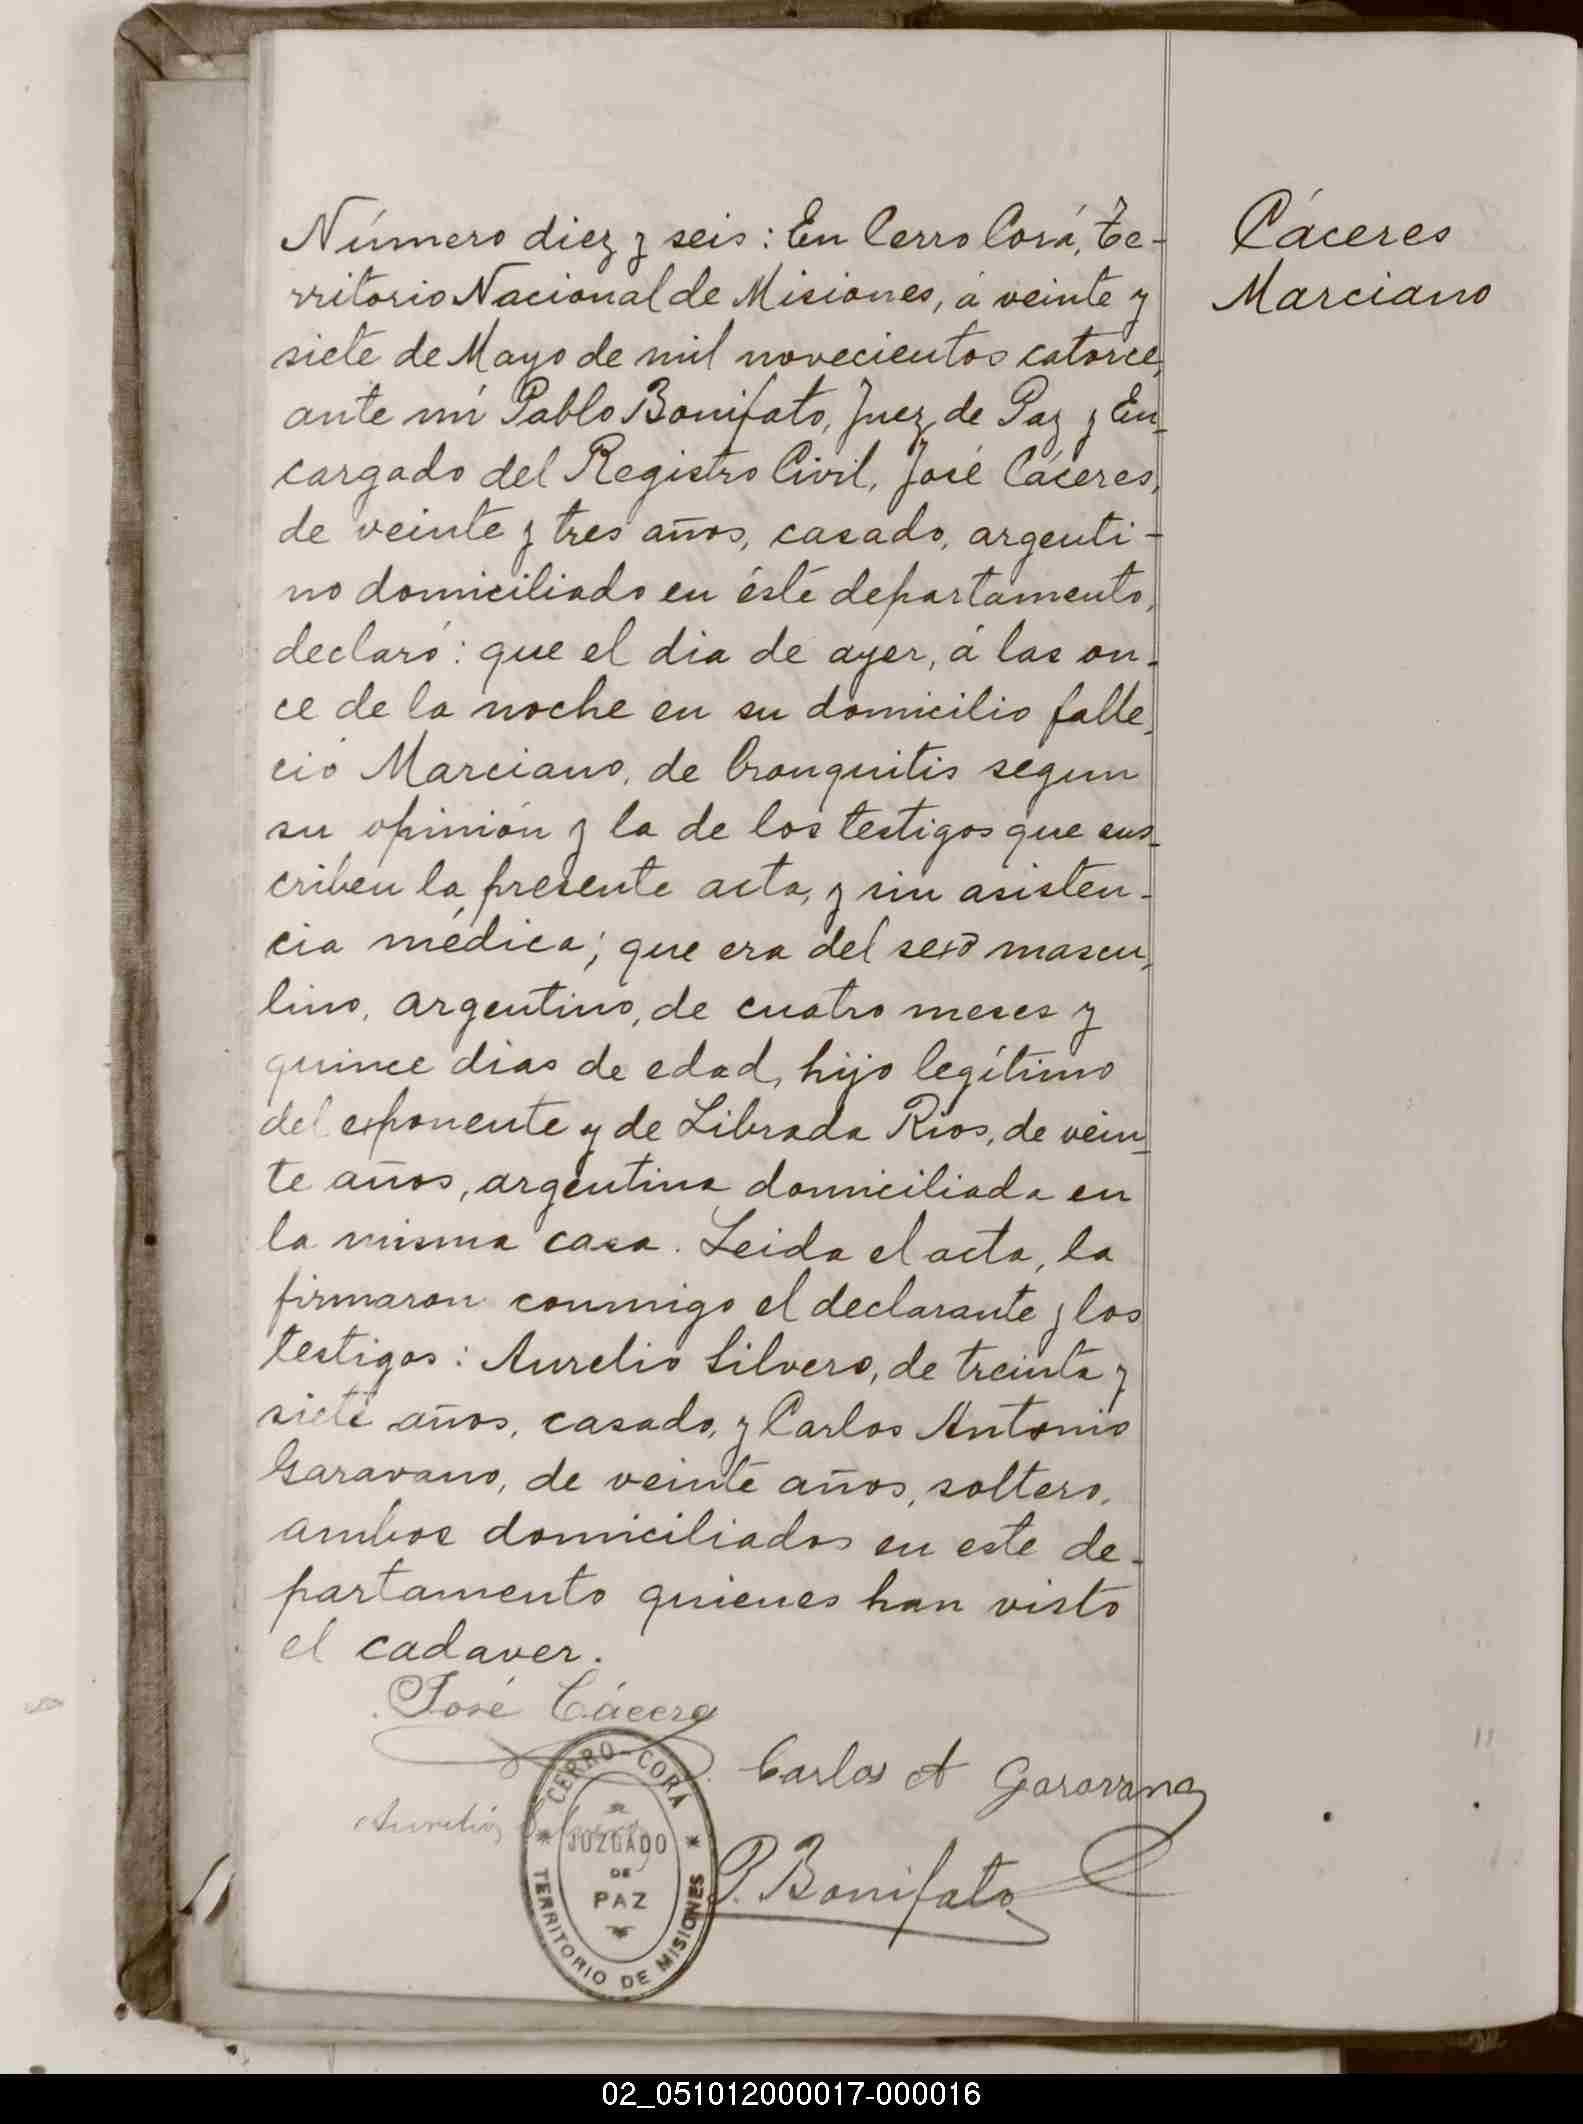 Cáceres
Marciano
Número diez y seis: En Cerro Corá, Te-
rritorio Nacional de Misiones, á veinte y
siete de Mayo de mil novecientos catorce,
ante mí Pablo Bonifato, Juez de Paz y En-
cargado del Registro Civil, José Cáceres,
de veinte y tres años, casado, argenti-
no domiciliado en éste departamento,
declaró: que el dia de ayer, á las on-
ce de la noche en su domicilio falle-
ció Marciano, de bronquitis segun
su opinión y la de los testigos que sus-
criben la presente acta, y sin asisten-
cia médica; que era del sexo mascu-
lino, argentino, de cuatro meses y
quince dias de edad, hijo legítimo
del exponente y de Librada Rios, de vein-
te años, argentina domiciliada en
la misma casa. Leida el acta, la
firmaron conmigo el declarante y los
testigos: Aurelio Silvero, de treinta y
siete años, casado, y Carlos Antonio
Garavano, de veinte años, soltero,
ambos domiciliados en este de-
partamento quienes han visto
el cadaver.
José Cáceres
Carlos A Garavano
Aurelio Silvero
P. Bonifato
CERRO-CORÁ
JUZGADO
DE
PAZ
TERRITORIO DE MISIONES
02_051012000017-000016